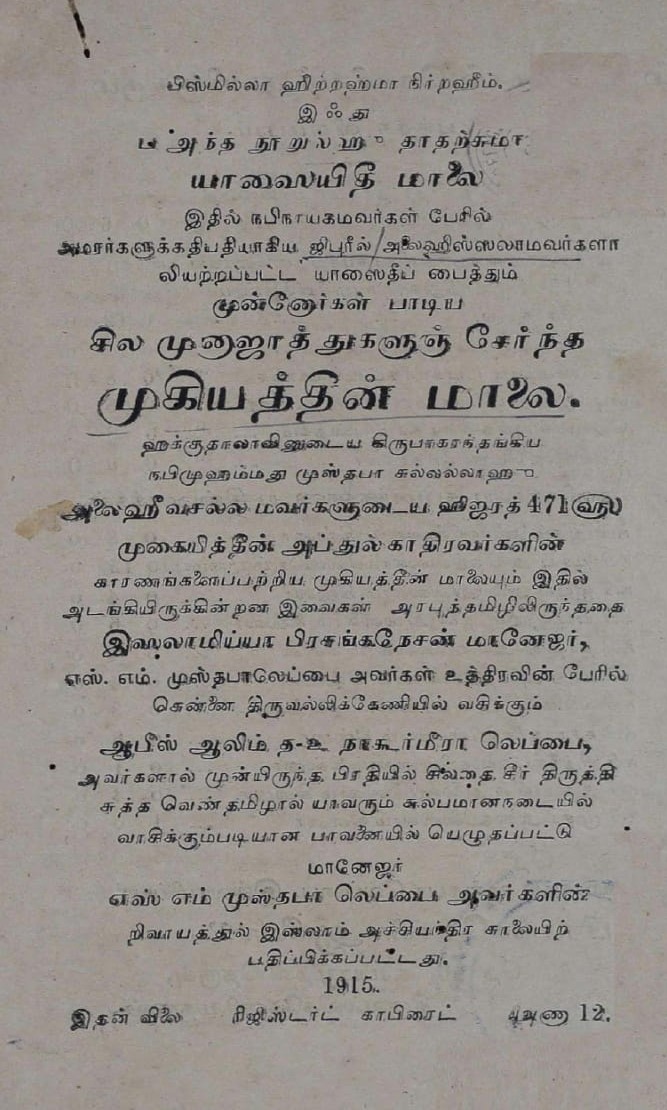 பிஸ்மில்லா ஹிற்றஹ்மா நிர்றஹீம்.
இஃது
அந்த நூறுல்ஹு தாதற்சுமா
யாஸையிதீ மாலை
இதில் நபிநாயகமவர்கள் பேரில்
அமரர்களுக்கதிபதியாகிய ஜிபுரீல் அலைஹிஸ்ஸலாமவர்களா
லியற்றப்பட்ட யாஸைதீப் பைத்தும்
முன்னோர்கள் பாடிய
சில முனாஜாத்துகளுஞ் சேர்ந்த
முகியத்தின் மாலை.
ஹக்குதாலாவினுடைய கிருபாகரந்தங்கிய
நபிமுஹம்மது முஸ்தபா சுல்லல்லாஹு
அலைஹீ வசல்ல மவர்களுடைய ஹிஜரத் 471 (௵)
முகையித்தீன் அப்துல் காதிரவர்களின்
காரணங்களைப்பற்றிய முகியத்தீன் மாலையும் இதில்
அடங்கியிருக்கின்றன இவைகள் அரபுந்தமிழிலிருந்ததை
இஸ்லாமிய்யா பிரசுங்கநேசண் மானேஜர்,
எஸ். எம். முஸ்தபாலெப்பை அவர்கள் உத்திரவின் பேரில்
சென்னை திருவல்லிக்கேணியில் வசிக்கும்
ஆபீஸ் ஆலிம் த-உ நாகூர்மீரா லெப்பை,
அவர்களால் முன்யிருந்த பிரதியில் சிலதை சீர் திருத்தி
சுத்த வெண்தமிழால் யாவரும் சுல்பமானநடையில்
வாசிக்கும்படியான பாவனையில் யெழுதப்பட்டு
மானேஜர்
எஸ் எம் முஸ்தபா லெப்பை அவர்களின்
றிவாயத்துல் இஸ்லாம் அச்சியந்திர சாலையிற்
பதிப்பிக்கப்பட்டது.
1915.
இதன் விலை ரிஜிஸ்டர்ட் காபிரைட் அணா 12.